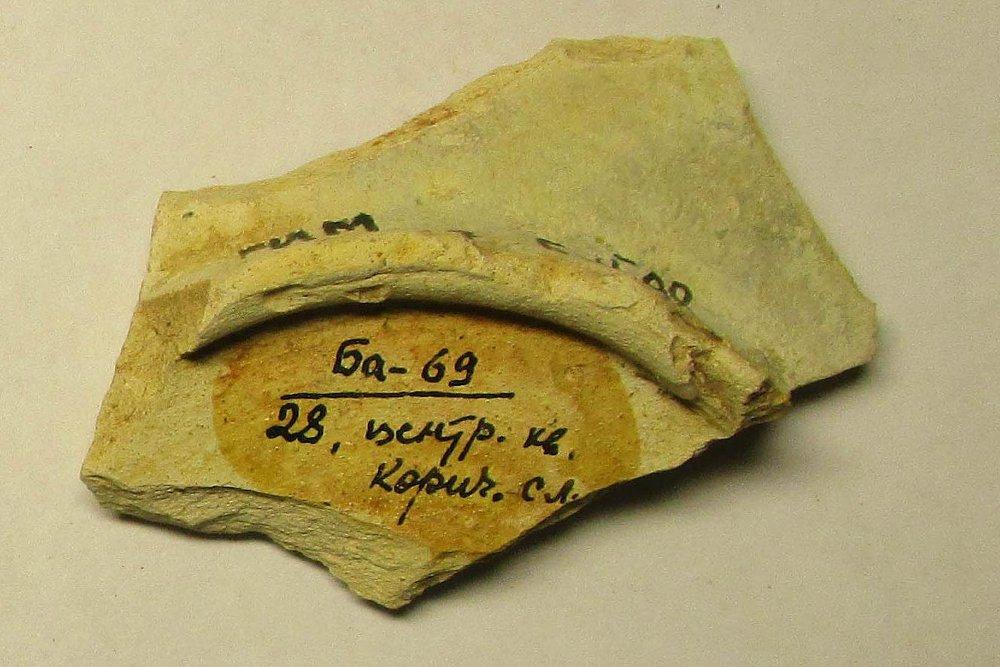 ГИМ
Ба-69
28, центр. кв.
Корич. сл.